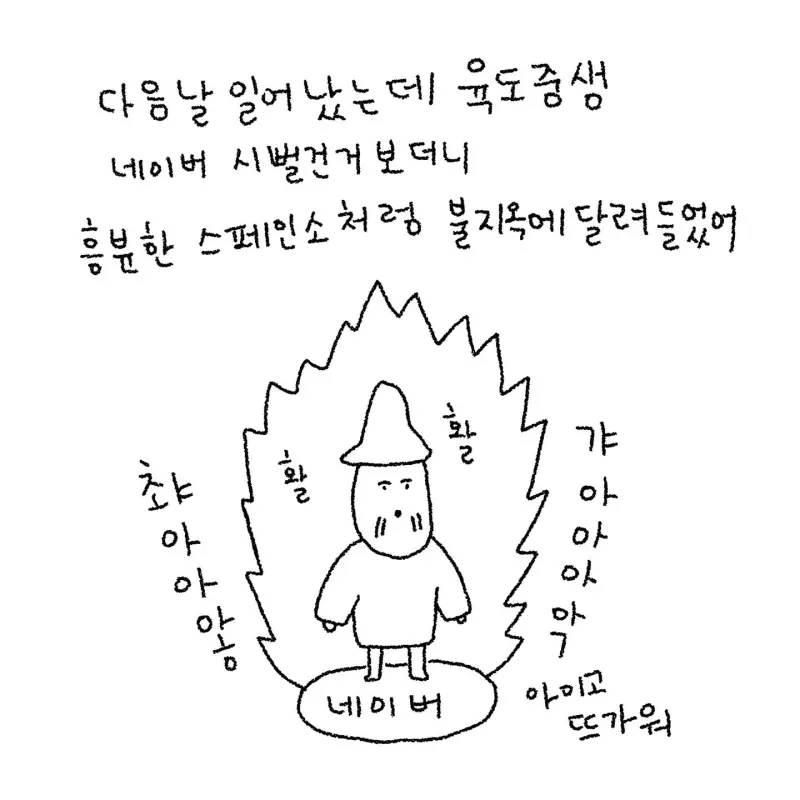 다음날 일어났는데 육도중생
네이버 시뻘건거 보더니
흥분한 스페인소처럼 불지옥에 달려들었어
활
활
챠
아
아
앙
갸
아
아
아
악
아이고
뜨가워
네이버